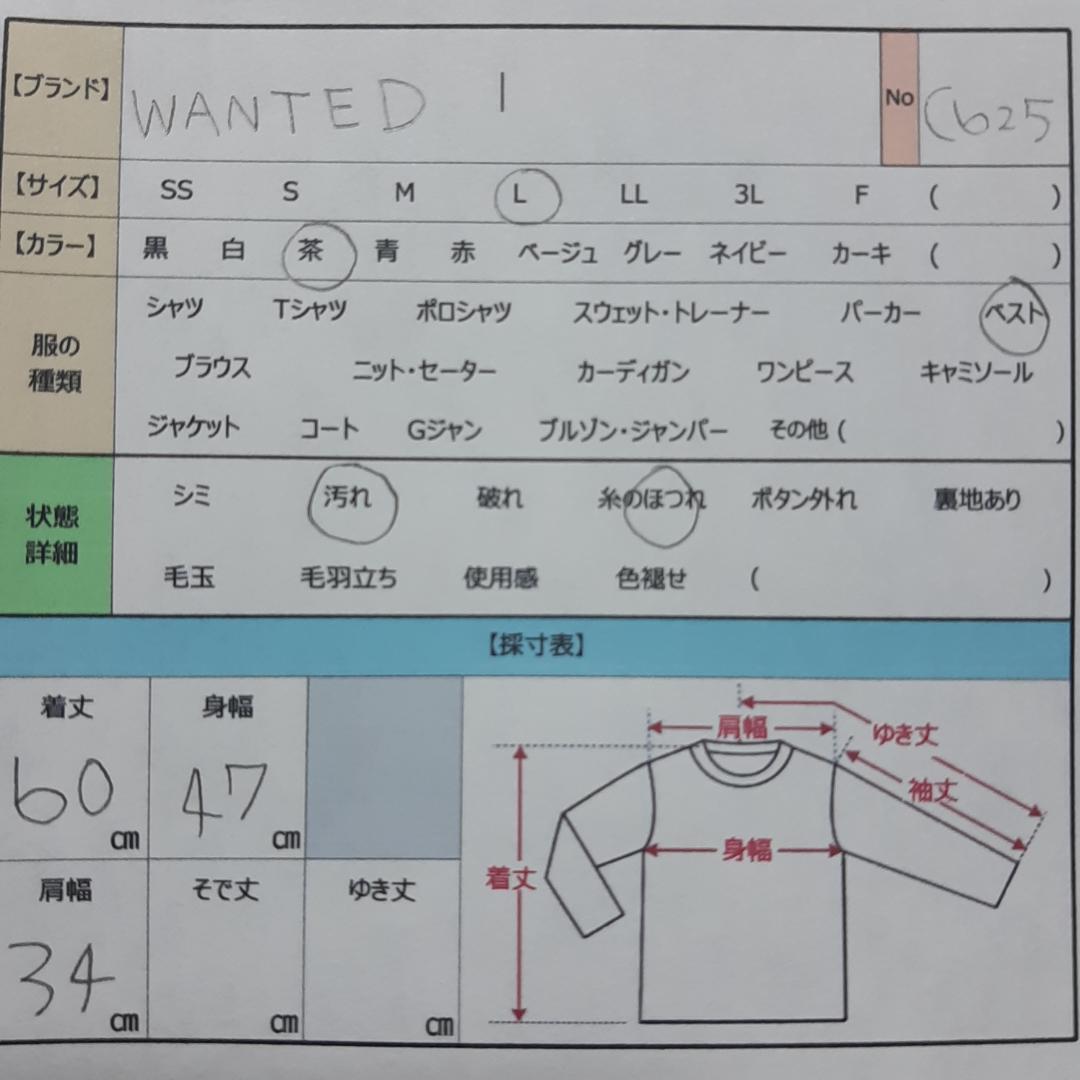 【ブランド】 WANTED 1 No C625
【サイズ】 SS S M L LL 3L F ( )
【カラー】 黒 白 茶 青 赤 ベージュ グレー ネイビー カーキ ( )
服の種類
シャツ Tシャツ ポロシャツ スウェット・トレーナー パーカー ベスト
ブラウス ニット・セーター カーディガン ワンピース キャミソール
ジャケット コート Gジャン ブルゾン・ジャンパー その他 ( )
状態詳細
シミ 汚れ 破れ 糸のほつれ ボタン外れ 裏地あり
毛玉 毛羽立ち 使用感 色褪せ ( )
【採寸表】
着丈 身幅
60 cm 47 cm
肩幅 そで丈 ゆき丈
34 cm cm cm
肩幅
ゆき丈
袖丈
身幅
着丈